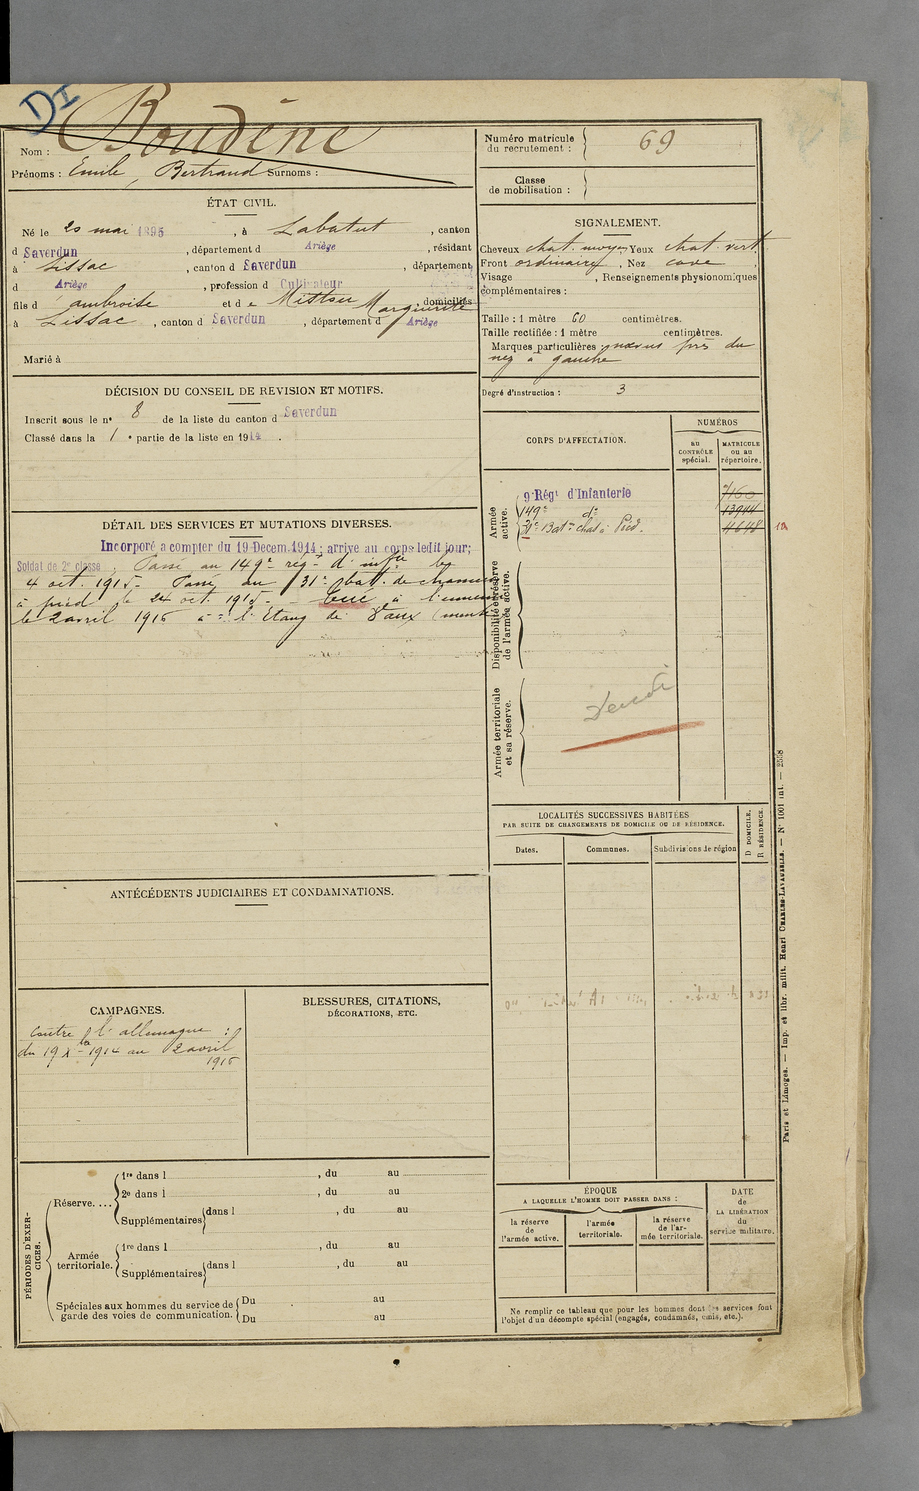 DI
Nom : Boudène
Prénoms : Emile, Bertrand Surnoms :
Numéro matricule du recrutement : 69
Classe de mobilisation :
ÉTAT CIVIL.
Né le 20 mai 1895, à Labatut, canton
d Saverdun, département d Ariège, résidant
à Lissac, canton d Saverdun, département
d Ariège, profession d Cultivateur
fils d ambroise et d e Mittou Marguerite domiciliés
à Lissac, canton d Saverdun, département d Ariège
Marié à
SIGNALEMENT.
Cheveux chat. moyen Yeux chat. vert
Front ordinaire, Nez cave
Visage , Renseignements physionomiques
complémentaires :
Taille : 1 mètre 60 centimètres.
Taille rectifiée : 1 mètre centimètres.
Marques particulières : nævus près du
nez à gauche
Degré d'instruction : 3
DÉCISION DU CONSEIL DE REVISION ET MOTIFS.
Inscrit sous le n° 8 de la liste du canton d Saverdun
Classé dans la 1 e partie de la liste en 1914.
CORPS D'AFFECTATION.
NUMÉROS
au CONTRÔLE spécial.
MATRICULE ou au répertoire.
Armée active.
9e Régt d'Infanterie 7160
149e do 13944
31e Baton chas. à Pied. 4648
Disponibilité et réserve de l'armée active.
Armée territoriale et sa réserve.
DÉTAIL DES SERVICES ET MUTATIONS DIVERSES.
Incorporé a compter du 19 Decem. 1914 ; arrive au corps ledit jour;
Soldat de 2e classe. Passé au 149e rég-t d'inf-ie le
4 oct. 1915. Passé au 31e bat. de chasseurs
à pied le 24 oct. 1915. Tué à l'ennemi
le 2 avril 1916 à l'Etang de Vaux
LOCALITÉS SUCCESSIVES HABITÉES
PAR SUITE DE CHANGEMENTS DE DOMICILE OU DE RÉSIDENCE.
Dates.
Communes.
Subdivisions de région
D DOMICILE.
R RÉSIDENCE.
ANTÉCÉDENTS JUDICIAIRES ET CONDAMNATIONS.
CAMPAGNES.
Contre l'allemagne :
du 19 Xbre 1914 au 2 avril
1916
BLESSURES, CITATIONS,
DÉCORATIONS, ETC.
PÉRIODES D'EXERCICES.
Réserve....
1re dans l , du au
2e dans l , du au
Supplémentaires dans l , du au
Armée territoriale.
1re dans l , du au
Supplémentaires dans l , du au
Spéciales aux hommes du service de
garde des voies de communication.
Du au
Du au
ÉPOQUE
A LAQUELLE L'HOMME DOIT PASSER DANS :
la réserve de l'armée active.
l'armée territoriale.
la réserve de l'armée territoriale.
DATE de LA LIBÉRATION du service militaire.
Ne remplir ce tableau que pour les hommes dont les services font
l'objet d'un décompte spécial (engagés, condamnés, omis, etc.).
Paris et Limoges. — Imp. et libr. milit. Henri CHARLES-LAVAUZELLE. — N° 1001 int. — 2558